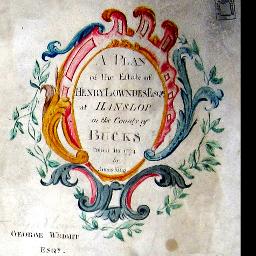 A PLAN
of the Estate of
HENRY LOWNDES Esqr.
at HANSLOP
in the County of
BUCKS
1779
by
GEORGE WRIGHT
ESQr.